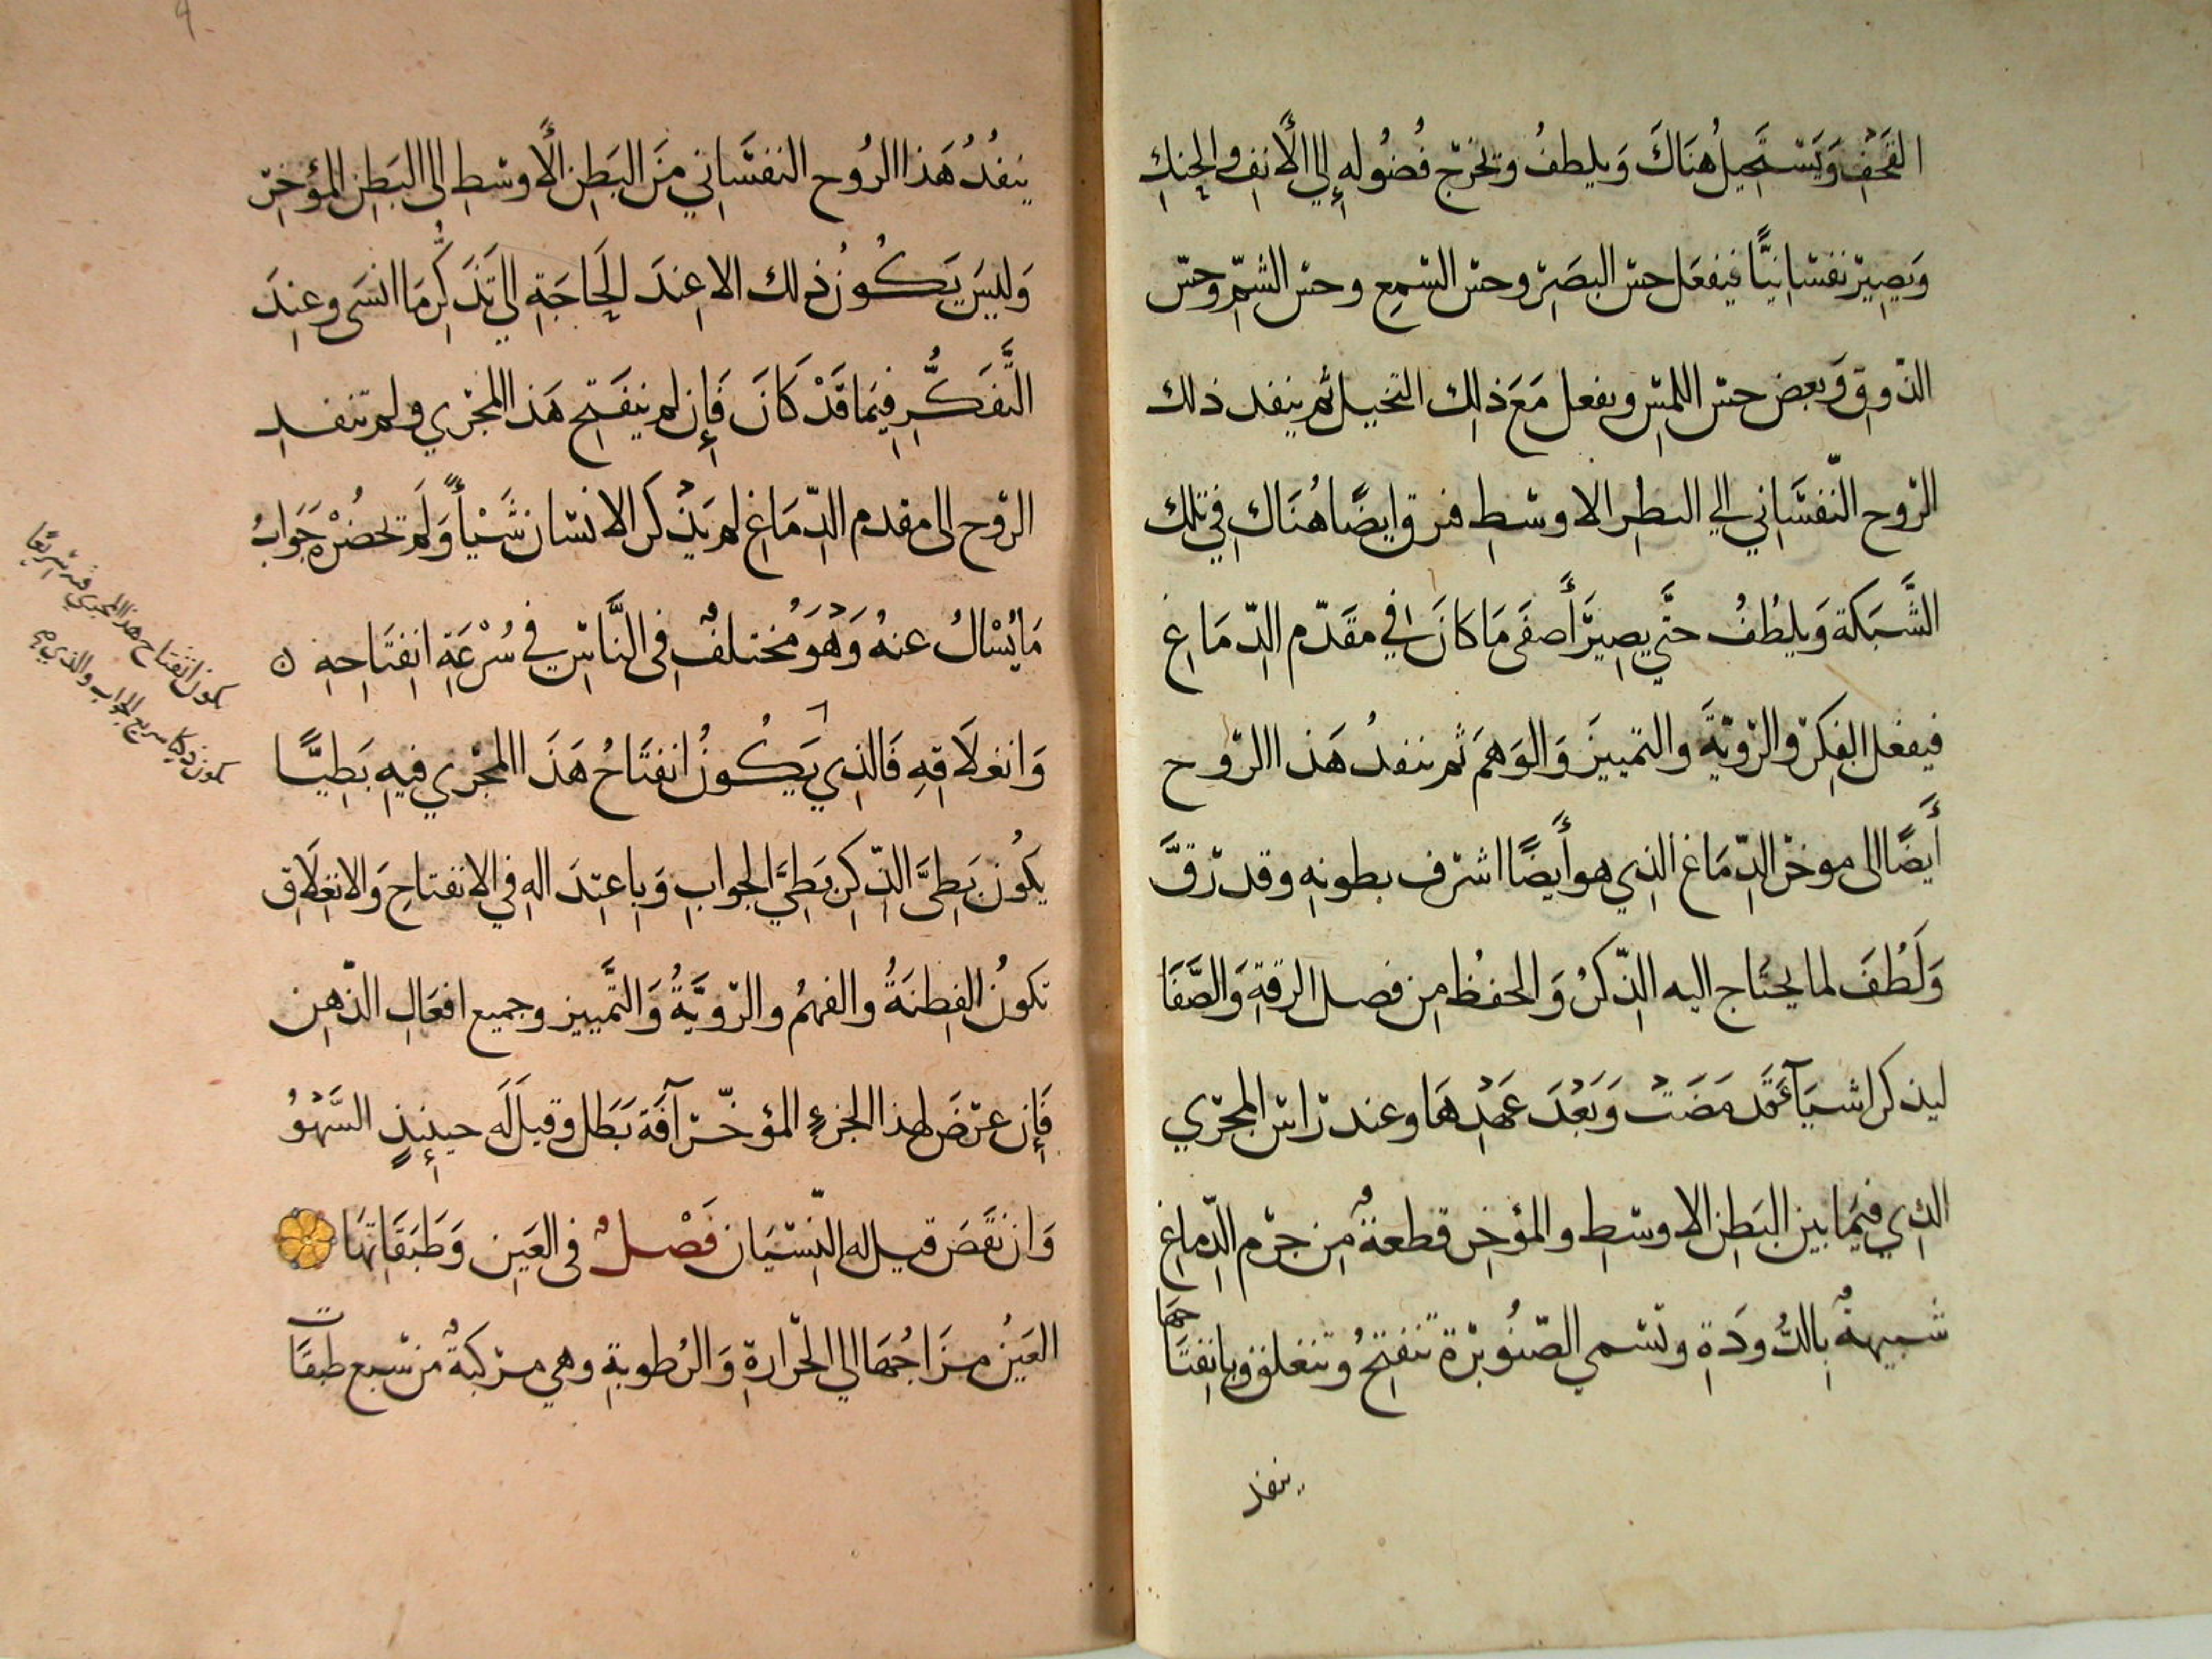 القَحْفِ وَيَسْتَحِيلُ هُنَاكَ وَيلطفُ وتخرج فُضُوله إلي الأنفِ والحِنكِ
وَيصِير نفسَانيًّا فيفعَل حس البصَر وحس السّمع وحس الشمّ وحسّ
الذّوقِ وَبعض حسّ اللمس ويفعل مَعَ ذلِك التخييل ثم ينفد ذلك
الرّوح النّفسَانِي الي البطن الاوسَطِ فيرق ايضًا هُنَاك في تلك
الشَّبَكة وَيلطُفُ حتَّي يصِيرَ أَصفَى مَا كَانَ في مقَدّم الدّمَاغِ
فيفعل الفِكرَ والرّويّةَ والتمييزَ وَالوَهمَ ثم ينفدُ هَذا الرّوح
أَيضًا الى موخر الدّمَاغ الذِي هو أَيضًا اشرف بطونهِ وقد رقَّ
وَلَطُفَ لما يحتاج اليه الذّكرُ وَالحفظُ مِن فصل الرقةِ وَالصَّفَا
ليذكر اشيَآءَ قَد مَضَتْ وَبَعُدَ عَهْدهَا وعند رَاس المجري
الذِي فيمَا بين البَطنِ الاوسَطِ والمؤخِر قطعةٌ مِن جرم الدّماغِ
شبيهةٌ بِالدُّودَةِ وتسمي الصّنُوبرة تنفتِحُ وتنغلق وبانفتَاحهَا
ينفذ
ينفُدُ هَذا الرُوح النفسَاني مَن البَطِن الأوسَطِ الى البَطن المؤخِر
وَليسَ يَكُونُ ذلك الا عِندَ الحَاجَةِ الي تَذَكُّرِ مَا انسَى وعندَ
التَّفَكُّرِ فيمَا قَدْ كَانَ فَإِن لم ينفَتِح هَذا المجْري ولم تنفد
الرّوح الى مقدم الدّمَاغِ لم يَذْكر الانسَان شَيْأً وَلَم تحضُرْه جَوَابُ
مَا يُسْاَلُ عنهُ وَهُوَ مُختلفٌ في النَّاسِ في سُرْعَةِ انفتَاحهِ ٥
وَانغلَاقهِ فَالذِي يَكُونُ انفتَاحُ هَذَا المجْري فيهِ بَطِيًّا
يكُون بَطِىَّ الذّكرِ بَطِيَّ الجوابِ وَبِاعتِدَالهِ في الانفتاحِ وَالانغِلَاقِ
تكونُ الفِطنَةُ والفهمُ والرّويَّةُ وَالتَّمييز وجميع افعَالِ الذّهِن
فَإِن عرَضَ لهذا الجزءِ المؤخّر آفَة بَطَل وقيلَ لَه حينِئِذٍ السَّهْوُ
وَان نَقَصَ قيل له النّسيَان فَصْلٌ في العَينِ وَطَبَقَاتهَا
العَينُ مزَاجُهَا الي الحَرَارةِ وَالرُطوبةِ وهي مركبةٌ من سَبع طبقَات
يكون انفتاح هذا المجري فيه سريعًا
يكون ذكيا سريع الجواب والذي